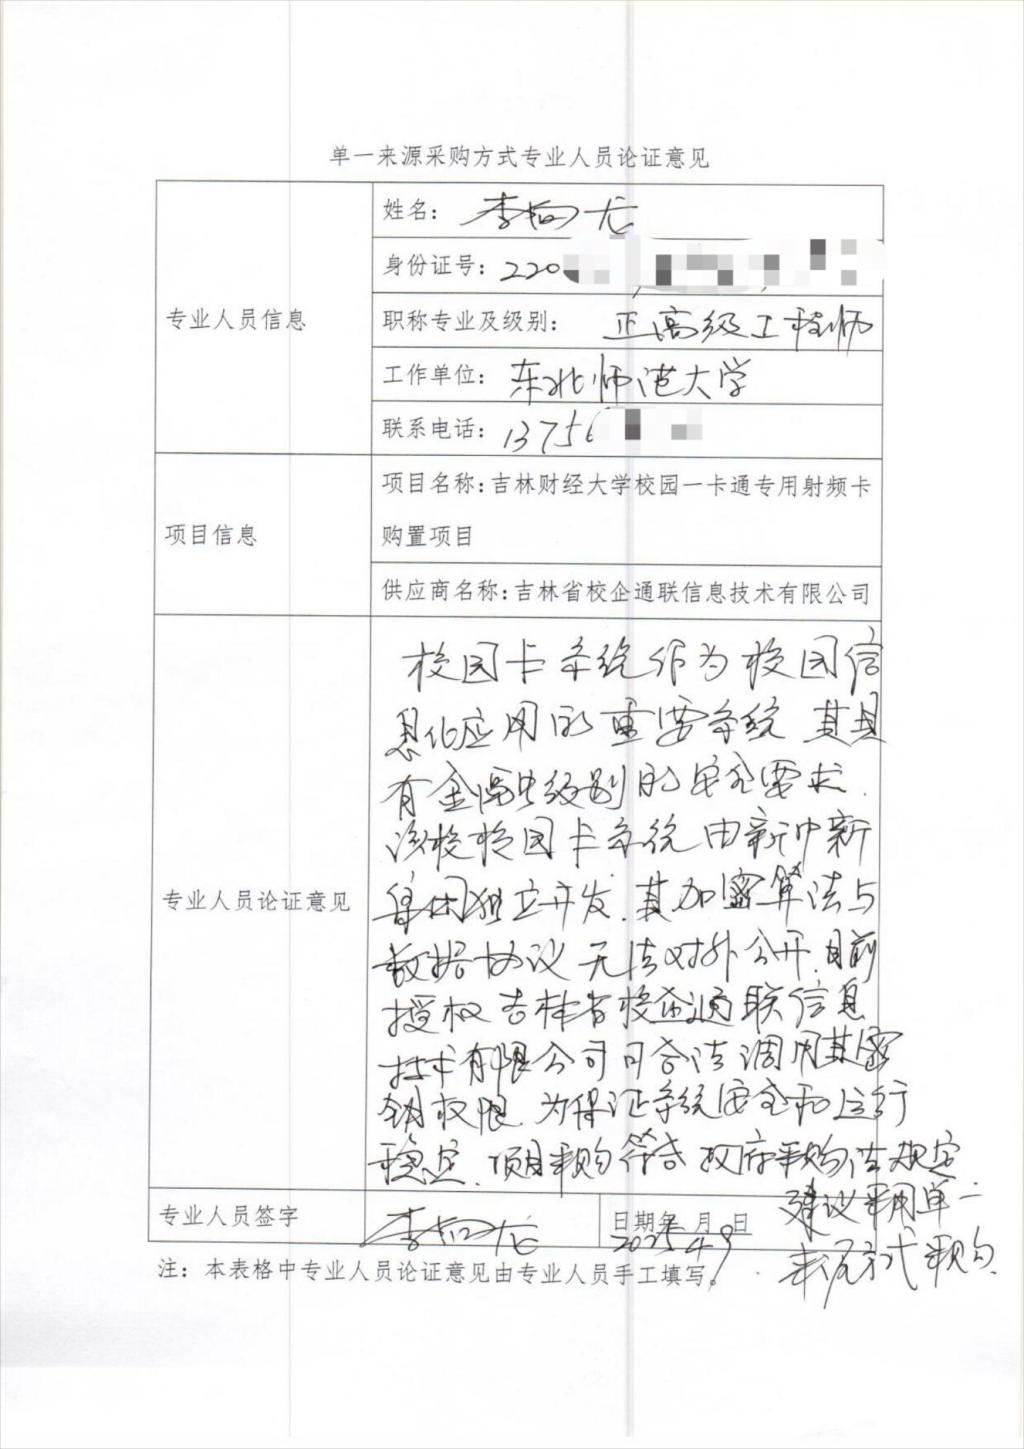 单一来源采购方式专业人员论证意见
专业人员信息
姓名：李向龙
身份证号：220
职称专业及级别：正高级工程师
工作单位：东北师范大学
联系电话：13756
项目信息
项目名称：吉林财经大学校园一卡通专用射频卡
购置项目
供应商名称：吉林省校企通联信息技术有限公司
专业人员论证意见
校园卡系统作为校园信
息化应用的重要系统 其具
有金融级别的安全要求.
该校校园卡系统由新中新
集团独立开发.其加密算法与
数据协议无法对外公开.目前
授权吉林省校企通联信息
技术有限公司可合法调用其密
钥权限.为保证系统安全和运行
稳定.项目采购符合政府采购法规定
建议采用单一
来源方式采购.
专业人员签字
李向龙
日期 年 月 日
2025.4.9
注：本表格中专业人员论证意见由专业人员手工填写。